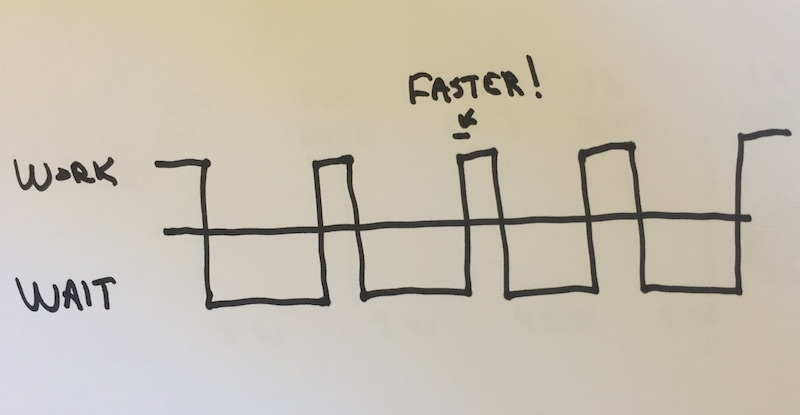 FASTER!
WORK
WAIT